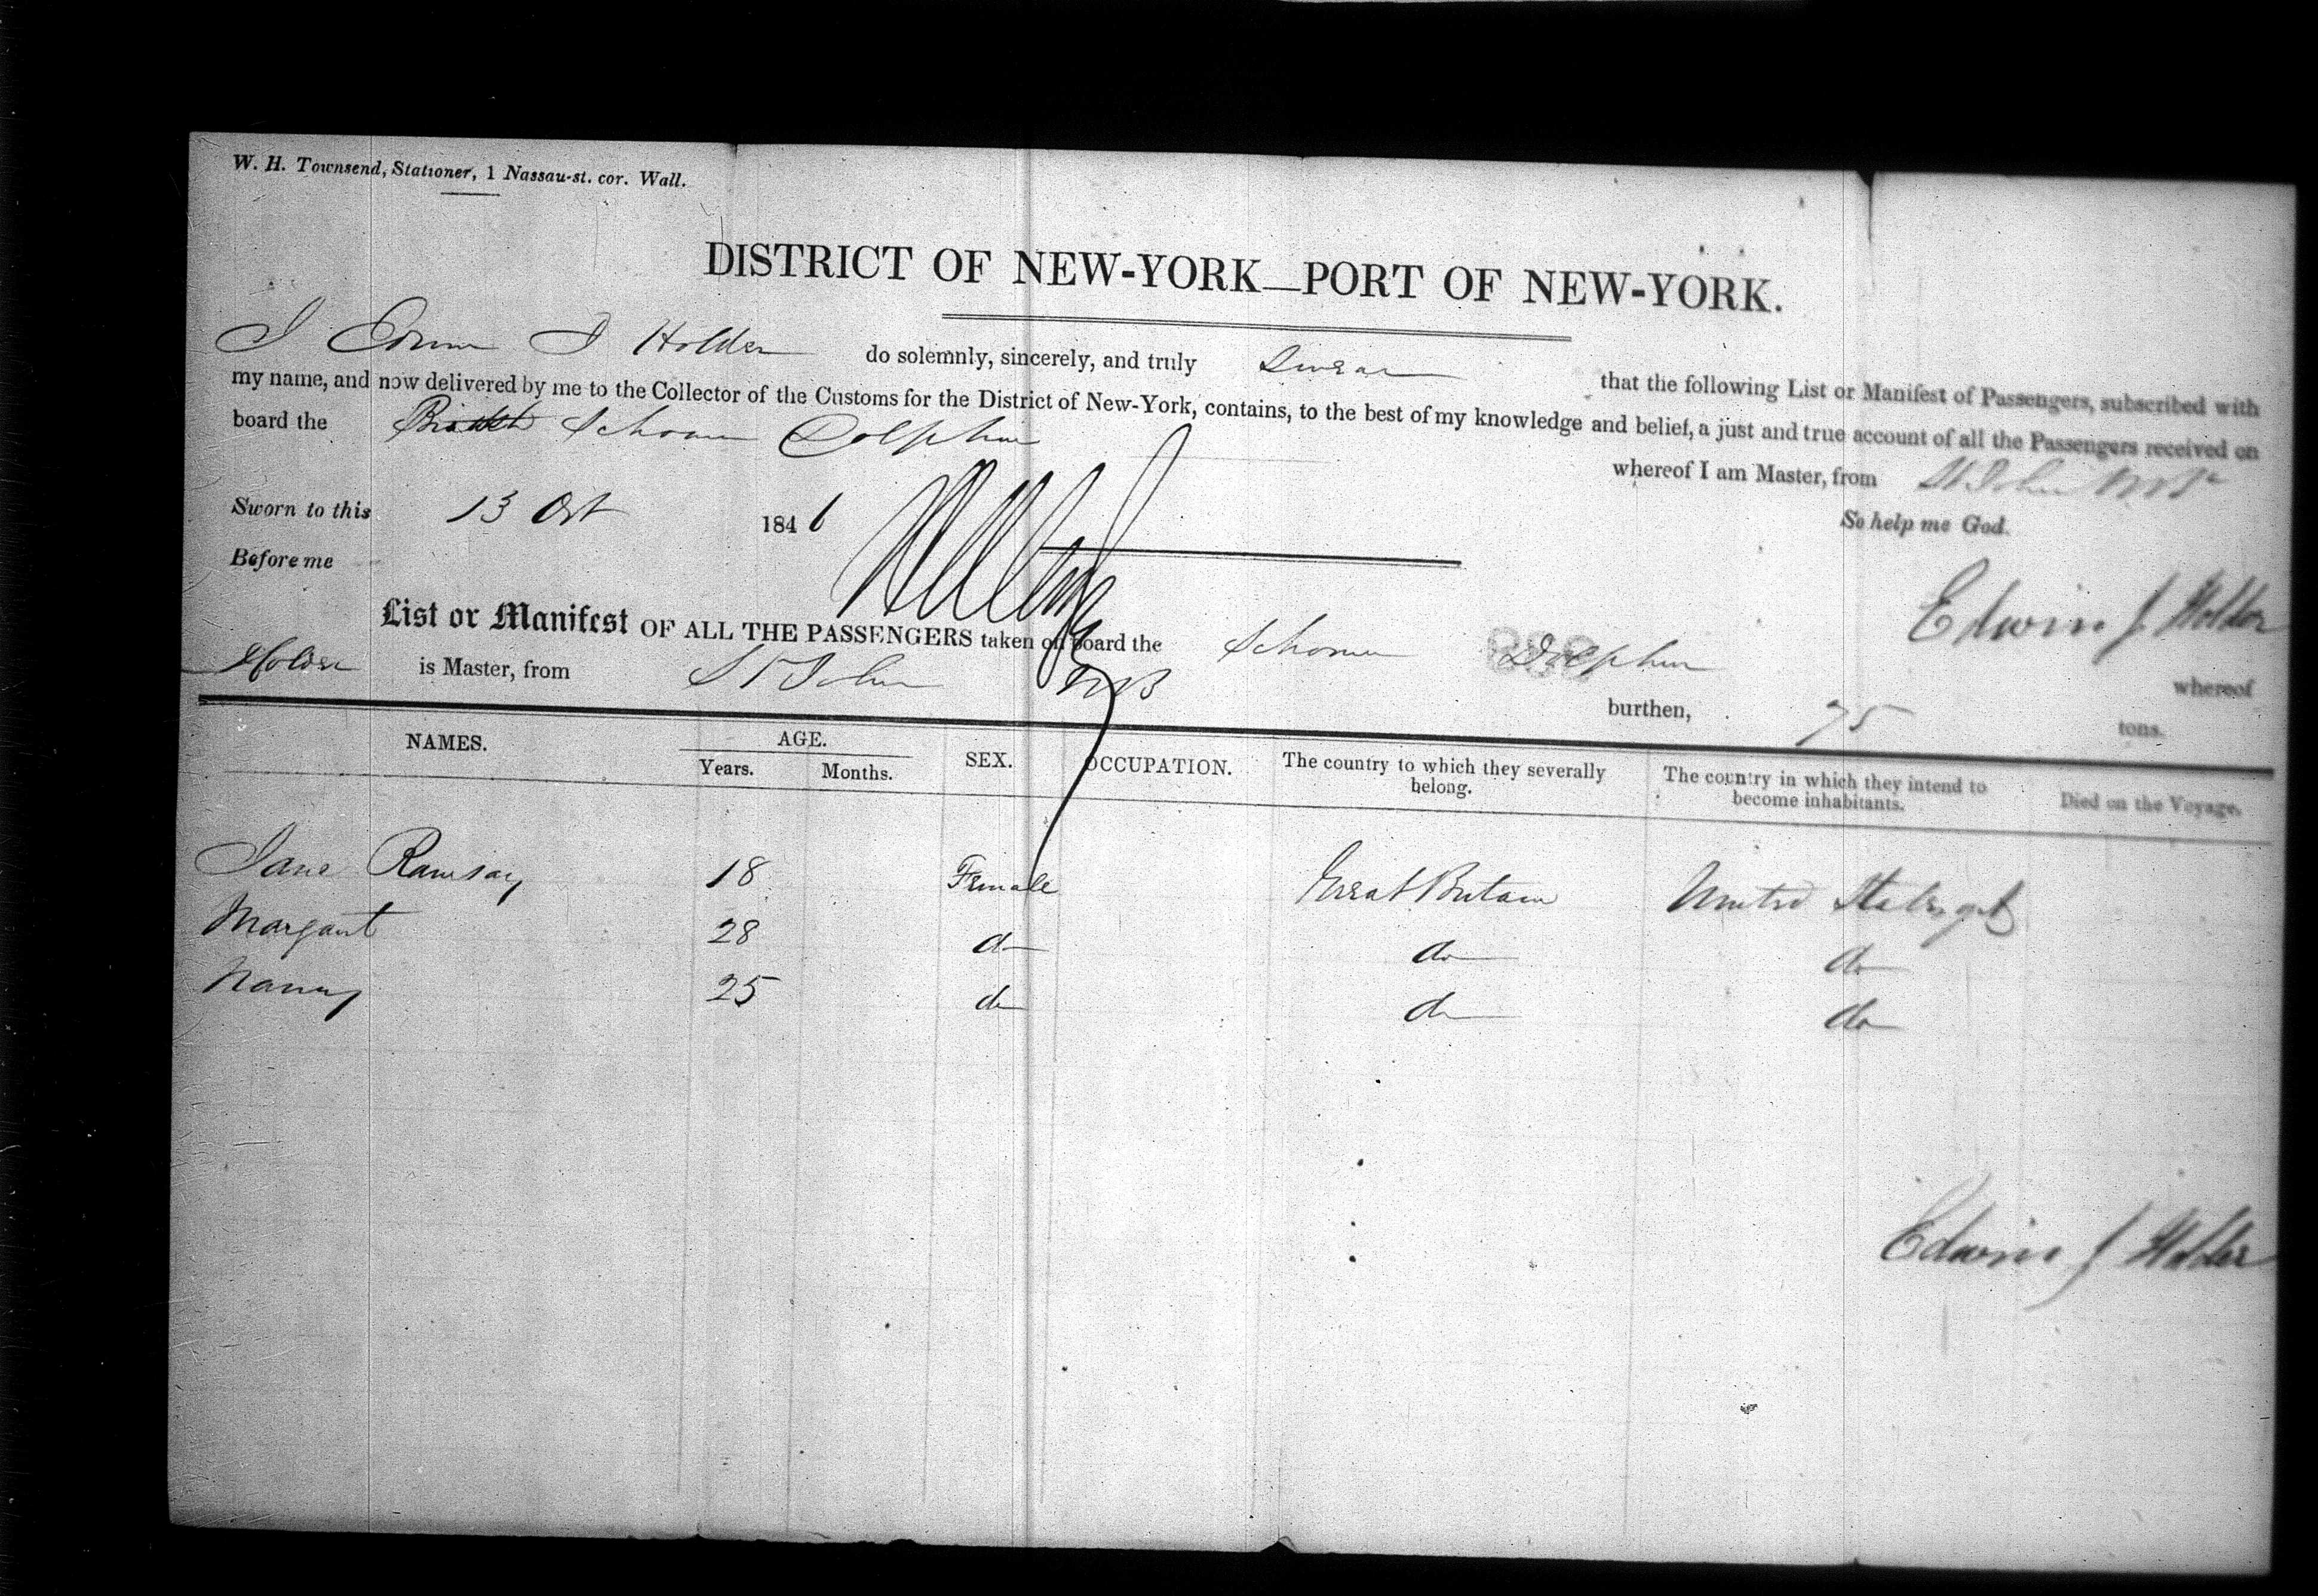 W. H. Townsend, Stationer, 1 Nassau-st. cor. Wall.
DISTRICT OF NEW-YORK—PORT OF NEW-YORK.
I Edwin J Holder do solemnly, sincerely, and truly Swear that the following List or Manifest of Passengers, subscribed with
my name, and now delivered by me to the Collector of the Customs for the District of New-York, contains, to the best of my knowledge and belief, a just and true account of all the Passengers received on
board the British Schooner Dolphin whereof I am Master, from St John NB
So help me God.
Sworn to this 13 Oct 1846
Before me
Edwin J Holder
List or Manifest OF ALL THE PASSENGERS taken on board the Schooner Dolphin whereof
Holder is Master, from St John NB burthen, 75 tons.
NAMES. AGE. SEX. OCCUPATION. The country to which they severally belong. The country in which they intend to become inhabitants. Died on the Voyage.
Years. Months.
Jane Ramsay 18 Female Great Britain United States
Margaret 28 do do do
Nancy 25 do do do
Edwin J Holder